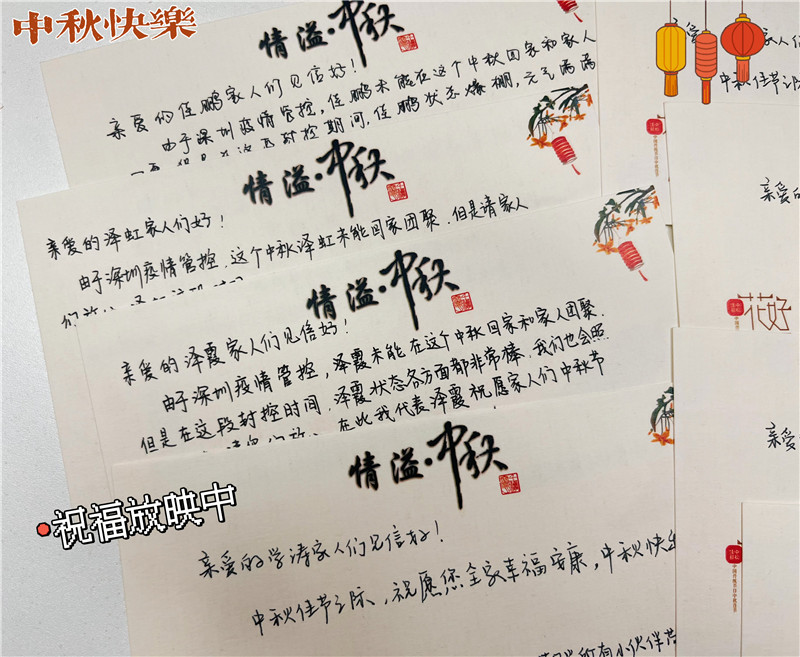 中秋快樂
情溢·中秋
亲爱的佳鹏家人们见信好！
由于深圳疫情管控，佳鹏未能在这个中秋回家和家人
封控期间，佳鹏状态爆棚，元气满满
情溢·中秋
亲爱的泽虹家人们好！
由于深圳疫情管控，这个中秋泽虹未能回家团聚，但是请家人
们放
情溢·中秋
亲爱的泽霞家人们见信好！
由于深圳疫情管控，泽霞未能在这个中秋回家和家人团聚.
但是在这段封控时间，泽霞状态各方面都非常棒，我们也会照
在此我代表泽霞祝愿家人们中秋节
祝福放映中
情溢·中秋
亲爱的学涛家人们见信好！
中秋佳节之际，祝愿您全家幸福安康，中秋快
所有小伙伴
亲
人们
中秋佳节
亲爱的
花好
亲爱